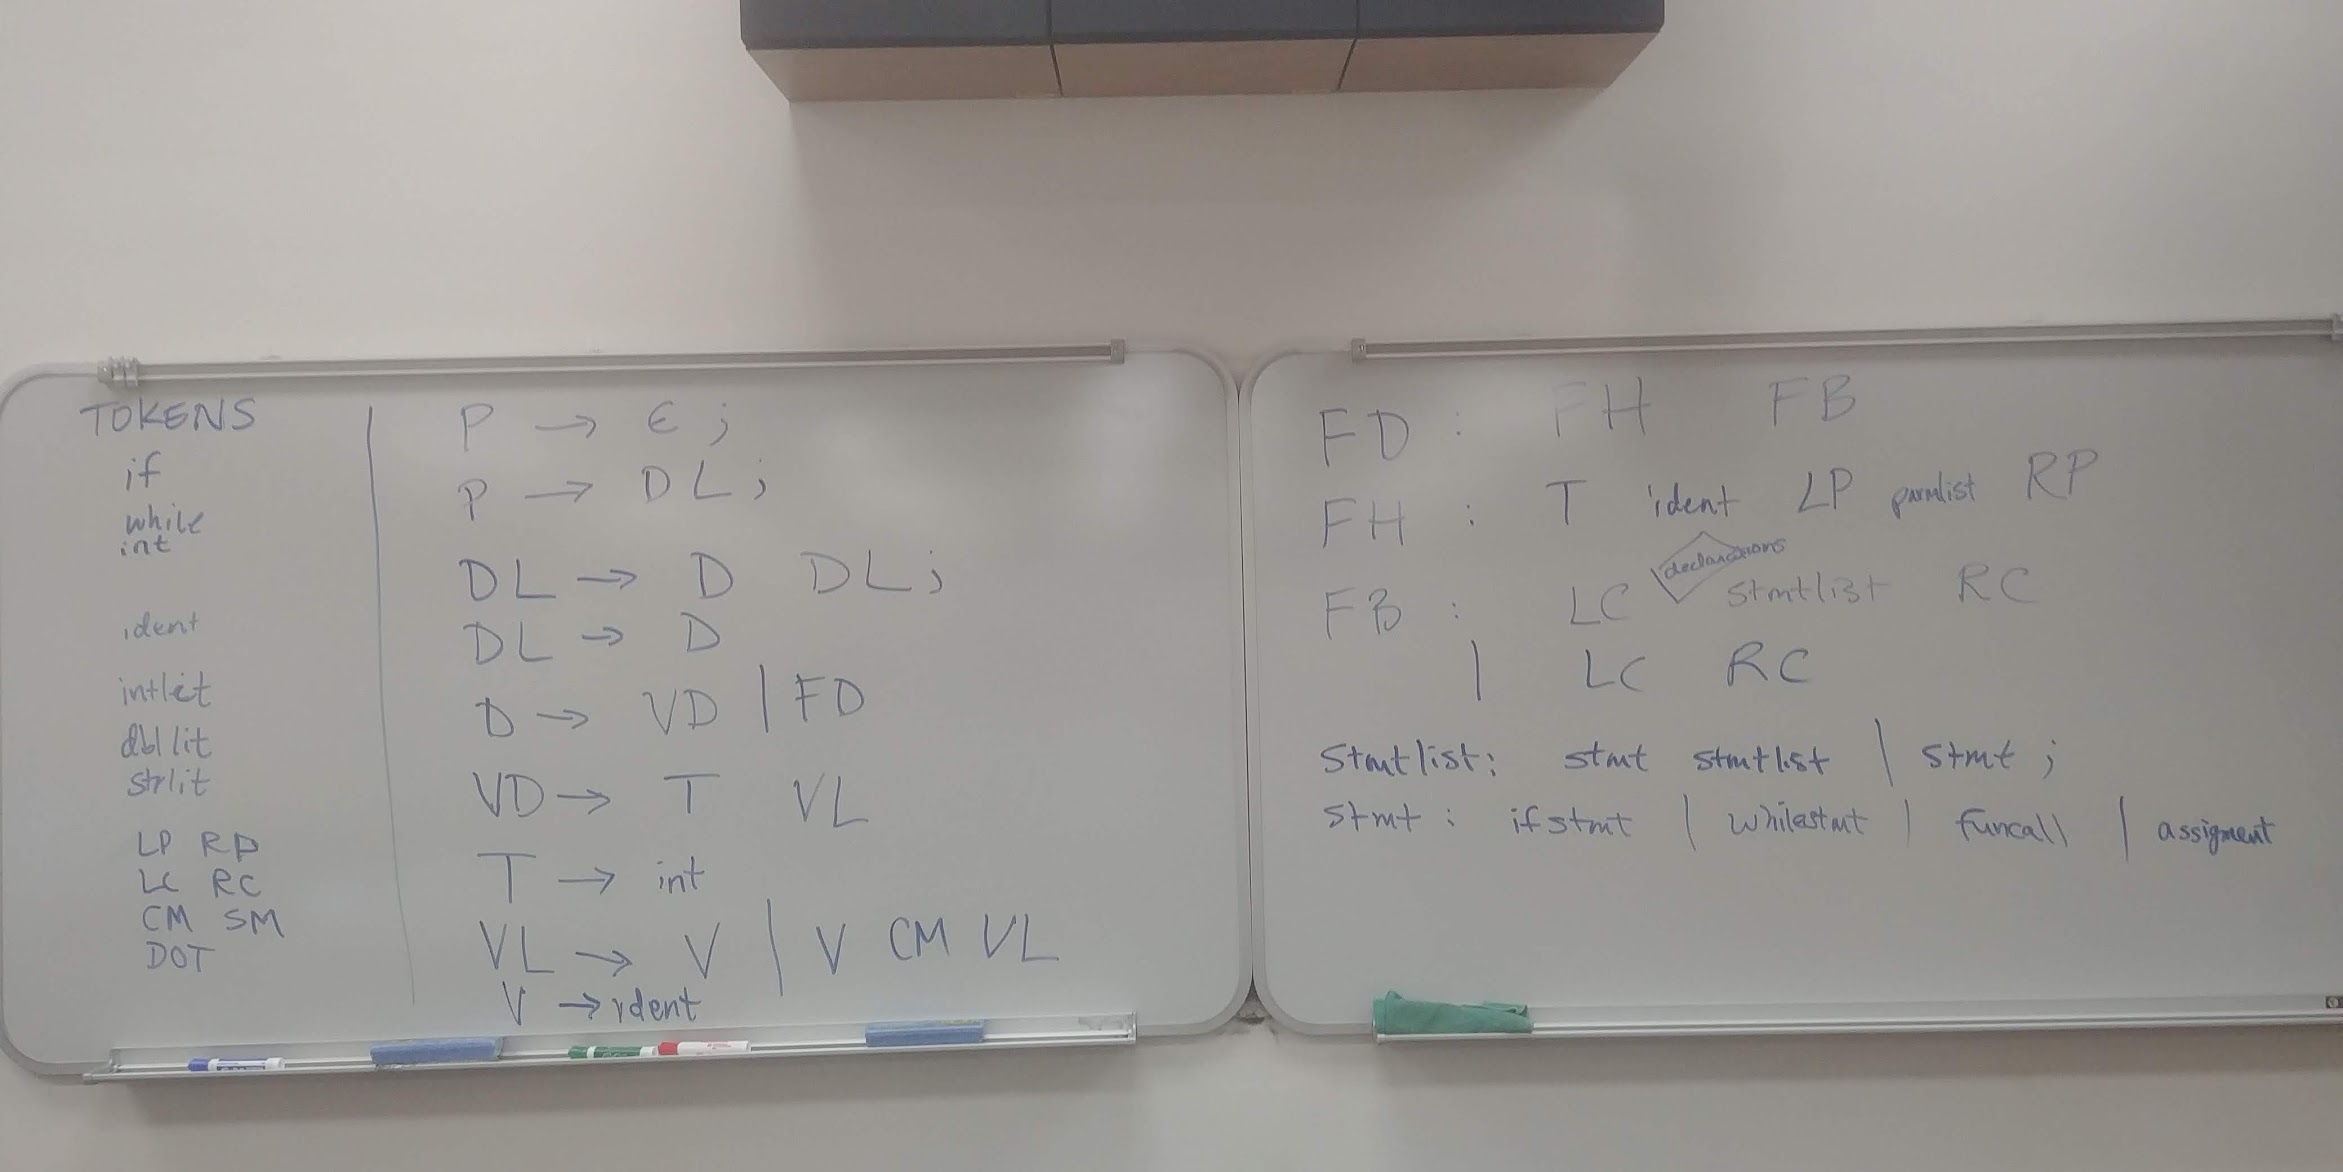 TOKENS
if
while
int
ident
intlit
dbl lit
strlit
LP RP
LC RC
CM SM
DOT
P → ε ;
P → DL ;
DL → D DL ;
DL → D
D → VD | FD
VD → T VL
T → int
VL → V | V CM VL
V → ident
FD : FH FB
FH : T ident LP parmlist RP
declarations
FB : LC stmtlist RC
| LC RC
Stmtlist : stmt stmtlist | stmt ;
stmt : ifstmt | whilestmt | funcall | assigment